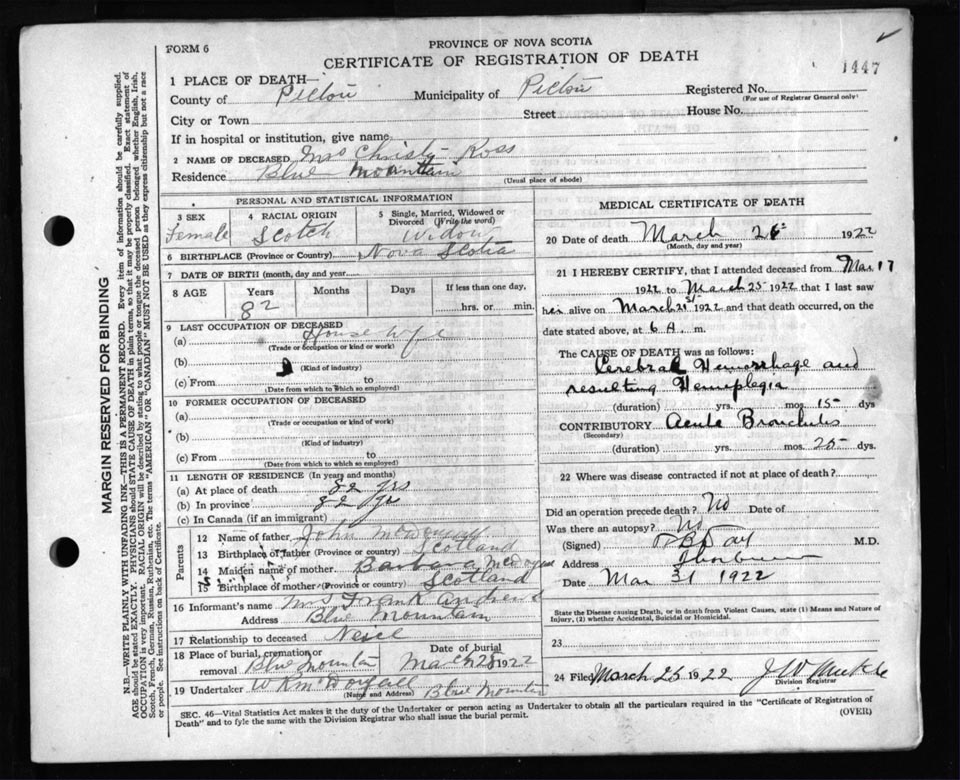 FORM 6
PROVINCE OF NOVA SCOTIA
CERTIFICATE OF REGISTRATION OF DEATH
1447
1 PLACE OF DEATH—
County of Pictou Municipality of Pictou Registered No.
(For use of Registrar General only)
City or Town Street House No.
If in hospital or institution, give name
2 NAME OF DECEASED Mrs Christy Ross
Residence Blue Mountain
(Usual place of abode)
PERSONAL AND STATISTICAL INFORMATION
3 SEX 4 RACIAL ORIGIN 5 Single, Married, Widowed or Divorced (Write the word)
Female Scotch Widow
6 BIRTHPLACE (Province or Country) Nova Scotia
7 DATE OF BIRTH (month, day and year)
8 AGE Years Months Days If less than one day,
82 hrs. or min.
9 LAST OCCUPATION OF DECEASED
(a) House wife
(Trade or occupation or kind of work)
(b)
(Kind of industry)
(c) From to
(Date from which to which so employed)
10 FORMER OCCUPATION OF DECEASED
(a)
(Trade or occupation or kind of work)
(b)
(Kind of industry)
(c) From to
(Date from which to which so employed)
11 LENGTH OF RESIDENCE (In years and months)
(a) At place of death 82 yrs
(b) In province 82 yrs
(c) In Canada (if an immigrant)
Parents
12 Name of father John
13 Birthplace of father (Province or country) Scotland
14 Maiden name of mother Barbara
15 Birthplace of mother (Province or country) Scotland
16 Informant's name Mrs Frank Andrews
Address Blue Mountain
17 Relationship to deceased Neice
18 Place of burial, cremation or removal Blue Mountain Date of burial March 28 1922
19 Undertaker W R McDougall Blue Mountain
(Name and Address)
MEDICAL CERTIFICATE OF DEATH
20 Date of death March 1922
(Month, day and year)
21 I HEREBY CERTIFY, that I attended deceased from Mar 17
1922 to March 25 1922 that I last saw
her alive on March 1922 and that death occurred, on the
date stated above, at 6 A. m.
The CAUSE OF DEATH was as follows:
Cerebral Hemorrhage and
resulting Hemiplegia
(duration) yrs. mos. 15 dys
CONTRIBUTORY Acute Bronchitis
(Secondary)
(duration) yrs. mos. 25 dys.
22 Where was disease contracted if not at place of death?
Did an operation precede death? No Date of
Was there an autopsy? No
(Signed) M.D.
Address
Date Mar 31 1922
State the Disease causing Death, or in death from Violent Causes, state (1) Means and Nature of Injury, (2) whether Accidental, Suicidal or Homicidal.
23
24 Filed March 25 1922
Division Registrar
SEC. 46—Vital Statistics Act makes it the duty of the Undertaker or person acting as Undertaker to obtain all the particulars required in the "Certificate of Registration of
Death" and to fyle the same with the Division Registrar who shall issue the burial permit.
(OVER)
MARGIN RESERVED FOR BINDING
N.B.—WRITE PLAINLY WITH UNFADING INK—THIS IS A PERMANENT RECORD. Every item of information should be carefully supplied.
AGE should be stated EXACTLY. PHYSICIANS should STATE CAUSE OF DEATH in plain terms, so that it may be properly classified. Exact statement of
OCCUPATION is very important. RACIAL ORIGIN will be described by stating to what people or tongue the deceased person belonged whether English, Irish,
Scotch, French, German, Russian, Ruthenian, etc. The terms "AMERICAN" or "CANADIAN" MUST NOT BE USED as they express citizenship but not a race
or people. See instructions on back of Certificate.